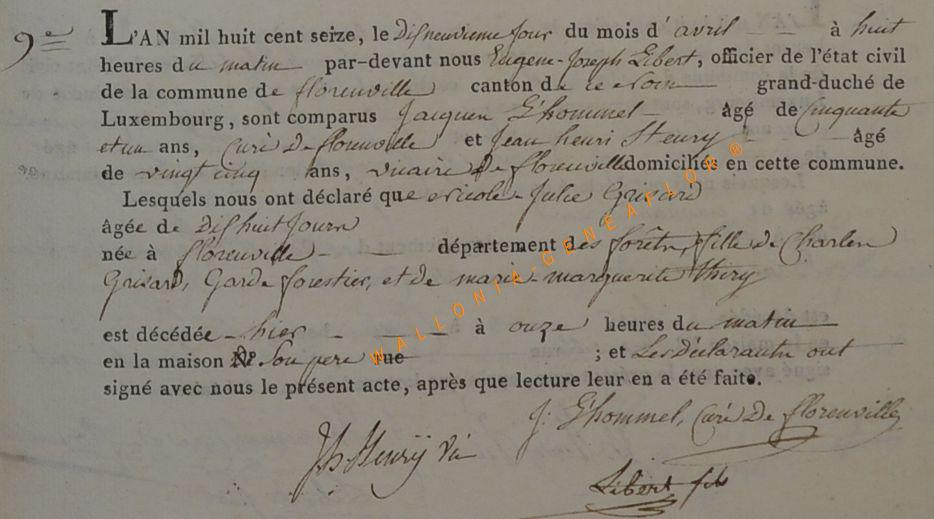 9e
L'AN mil huit cent seize, le Disneuvieme Jour du mois d'avril à huit
heures du matin par-devant nous Eugene-Joseph Libert, officier de l'état civil
de la commune de florenville canton de ce Nom grand-duché de
Luxembourg, sont comparus Jacques L'hommel âgé de Cinquante
et un ans, Curé de florenville et Jean henri henry âgé
de vingt cinq ans, vicaire de florenville domiciliés en cette commune.
Lesquels nous ont déclaré que Nicole-Julie Grisard
âgée de Dishuit Jours
née à florenville département des forêts, fille de Charles
Grisard, Garde forestier, et de marie-marguerite thiry
est décédée hier à onze heures du matin
en la maison De Son pere rue ; et Les Déclarants ont
signé avec nous le présent acte, après que lecture leur en a été faite.
J. L'hommel, Curé De florenville
Jh henrÿ Vic
Libert fils
WALLONIA-GENEATLOR ®